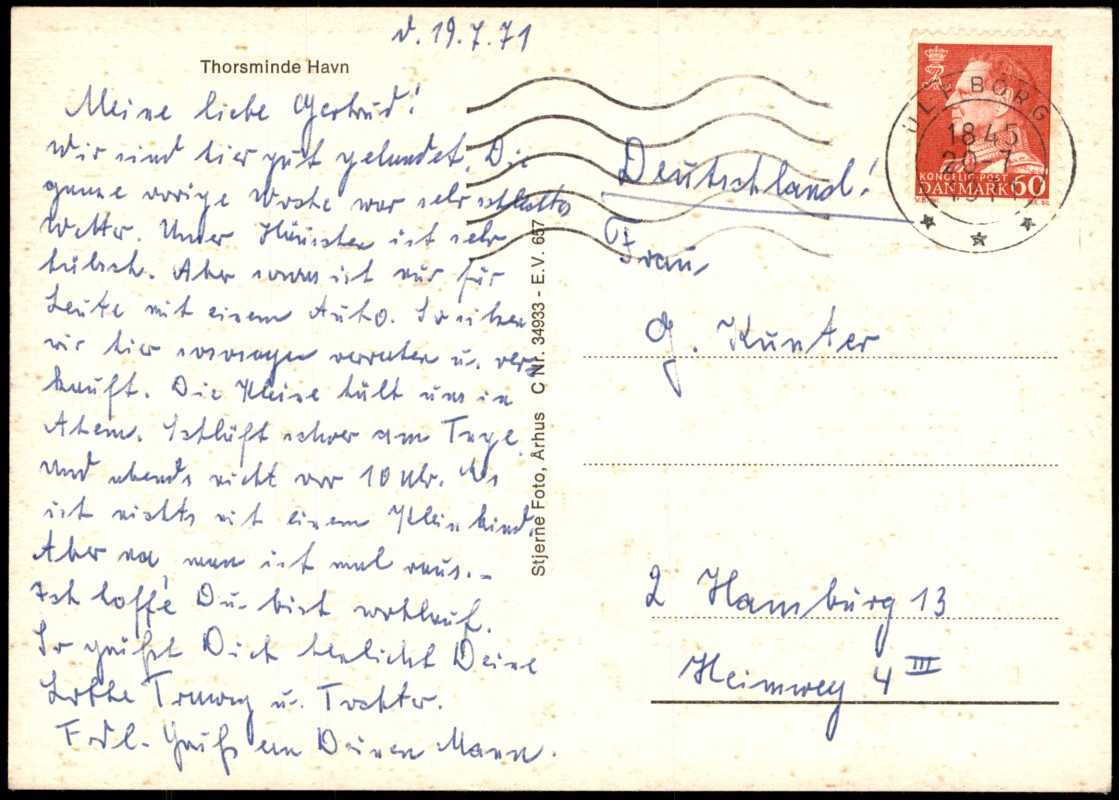 d. 19.7.71
Thorsminde Havn
Meine liebe Gertrud!
Wir sind hier gut gelandet. Die
ganze vorige Woche war sehr schlechtes
Wetter. Unser Häuschen ist sehr
hübsch. Aber sowas ist nur für
Leute mit einem Auto. So sitzen
wir hier sozusagen verraten u. ver-
kauft. Die Kleine hält uns in
Atem. Schläft schwer am Tage
und abends nicht vor 10 Uhr. Es
ist nichts mit einem Kleinkind.
Aber na, man ist mal raus.–
Ich hoffe Du bist wohlauf.
So grüßt Dich herzlichst Deine
Lotte u. Tochter.
Frdl. Gruß an Deinen Mann.
Stjerne Foto, Århus C Nr. 34933 - E.V. 657
ULFBORG
1845
20-7
1971
KONGELIG POST
DANMARK 60
Deutschland!
Frau
G. Kunter
2 Hamburg 13
Heimweg 4 III